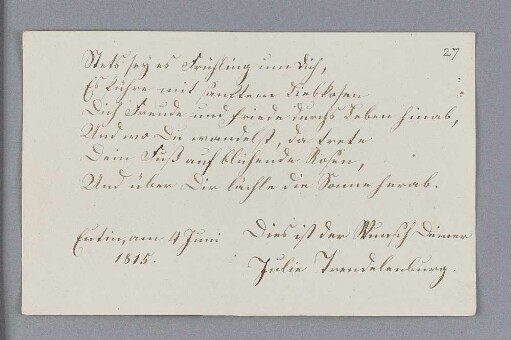 27
Stets sey es Frühling um Dich,
Es führe mit sanftem Liebkosen
Dich Freude und Friede durchs Leben hinab,
Und wo Du wandelst, da trete
Dein Fuß auf blühende Rosen,
Und über Dir lächle die Sonne herab.
Eutin, am 4 Juni
1815.
Dies ist der Wunsch Deiner
Julie Trendelenburg.